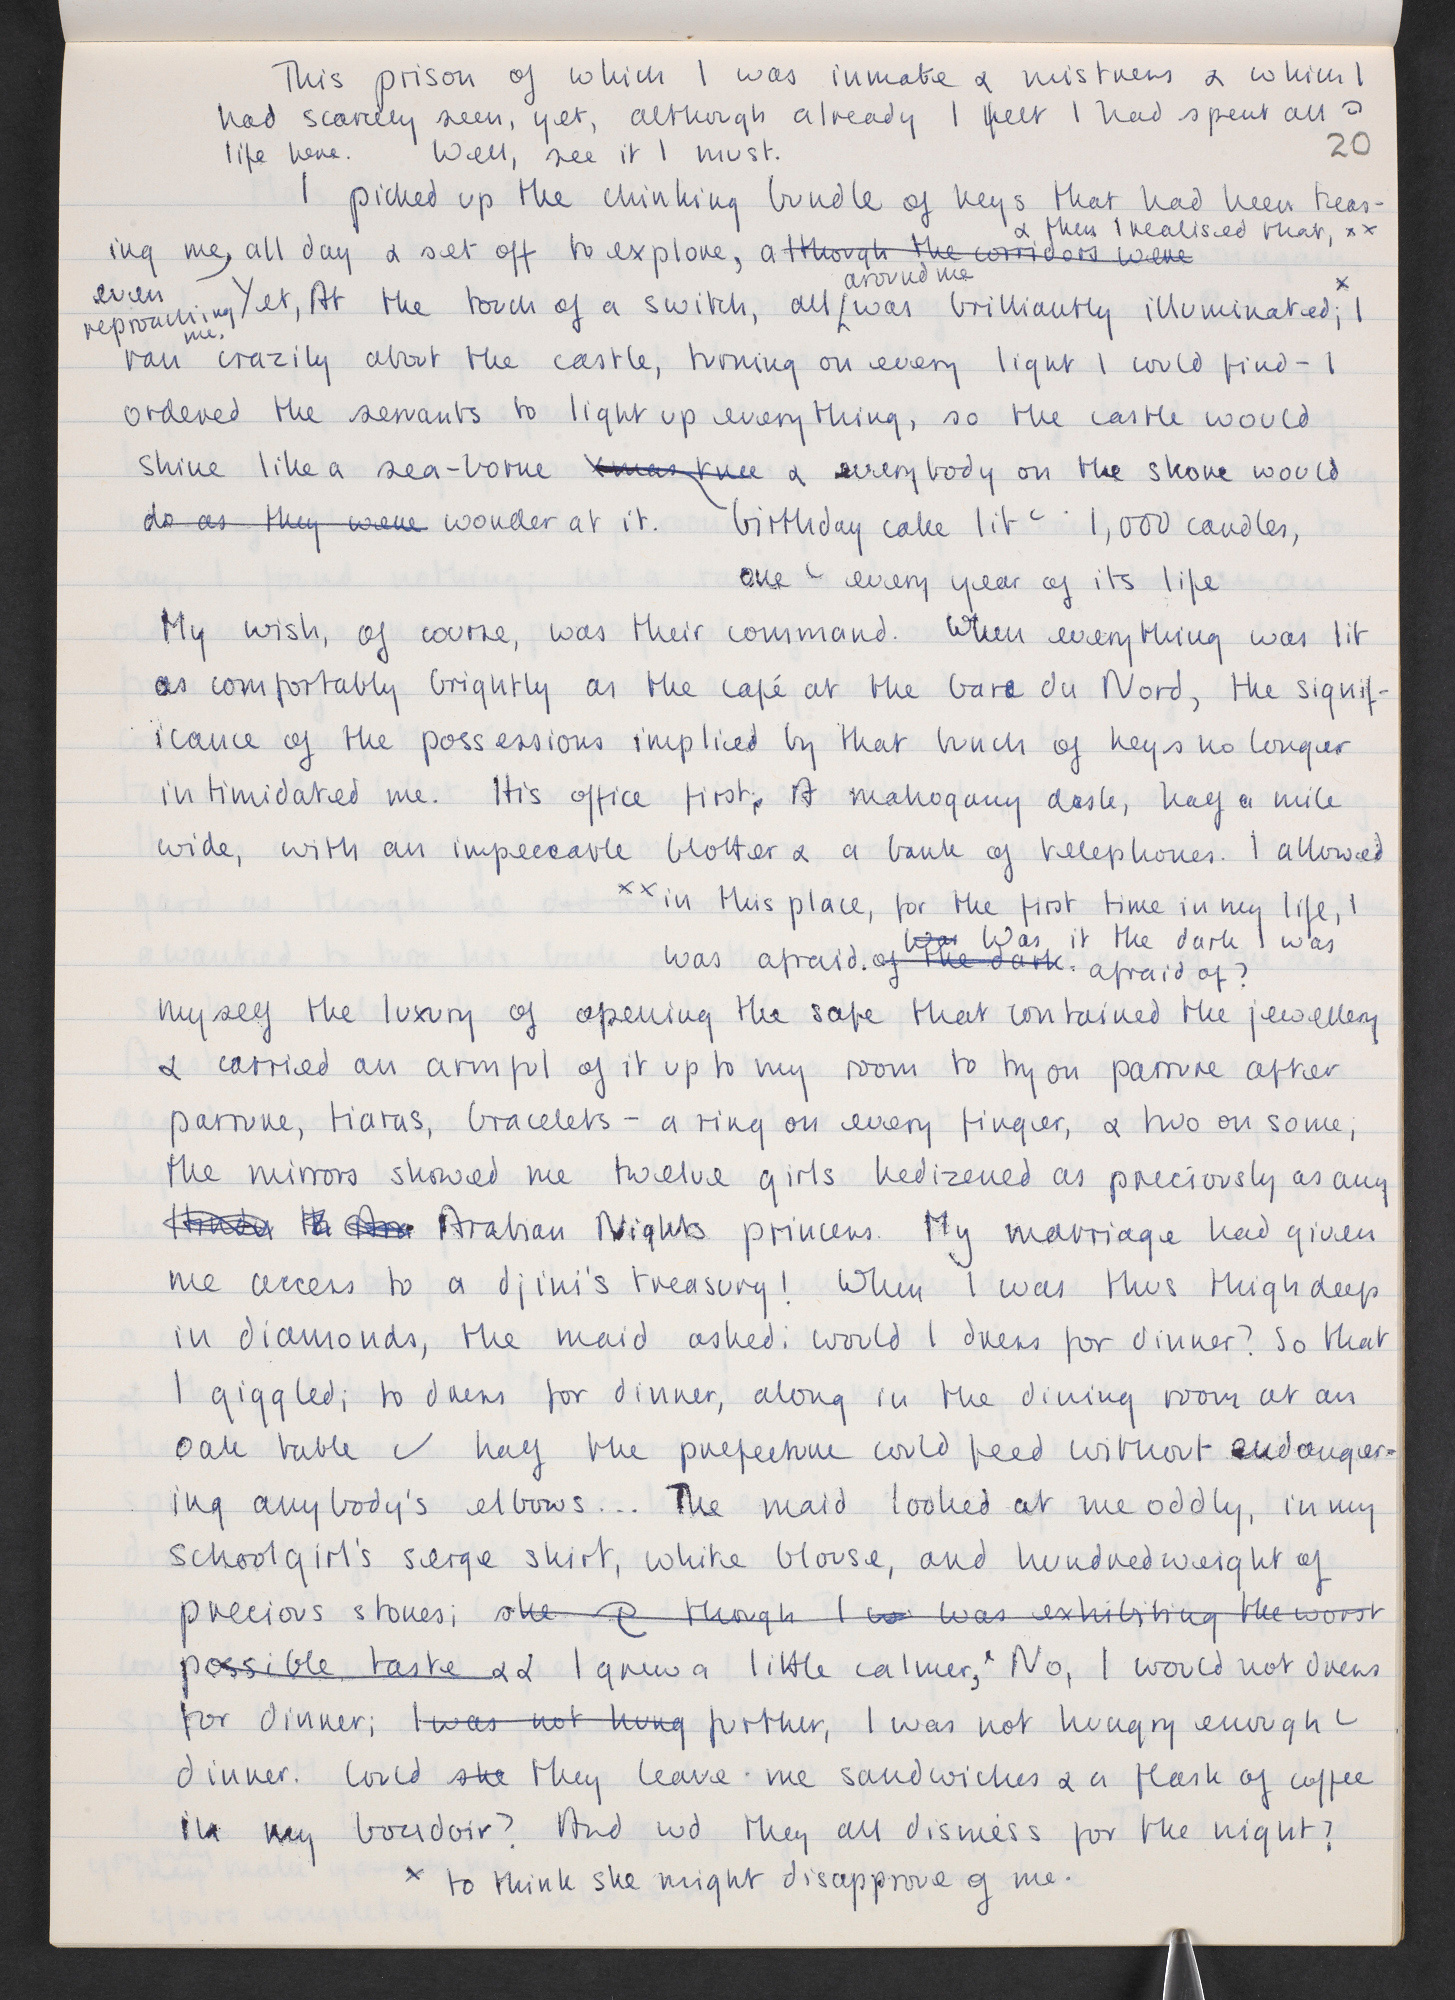 This prison of which I was inmate & mistress & which I
had scarcely seen, yet, although already I felt I had spent all
20
life here. Well, see it I must.
I picked up the chinking bundle of keys that had been teas-
& then I realised that, xx
ing me, all day & set off to explore, although the corridors were
around me
even
reproaching
me.
Yet, At the touch of a switch, all was brilliantly illuminated; x I
ran crazily about the castle, turning on every light I could find - I
ordered the servants to light up everything, so the castle would
shine like a sea-borne Xmas tree & everybody on the shore would
do as they were wonder at it. birthday cake lit 1,000 candles,
one every year of its life
My wish, of course, was their command. When everything was lit
as comfortably brightly as the café at the Gare du Nord, the signif-
icance of the possessions implied by that bunch of keys no longer
intimidated me. His office first; A mahogany desk, half a mile
wide, with an impeccable blotter & a bank of telephones. I allowed
xx in this place, for the first time in my life, I
was Was it the dark I was
was afraid. of the dark. afraid of?
myself the luxury of opening the safe that contained the jewellery
& carried an armful of it up to my room to try on parrure after
parrure, tiaras, bracelets - a ring on every finger, & two on some;
the mirrors showed me twelve girls bedizened as preciously as any
Arabian Nights princess. My marriage had given
me access to a djini's treasury! When I was thus thigh deep
in diamonds, the maid asked: would I dress for dinner? So that
I giggled; to dress for dinner, along in the dining room at an
oak table half the prefecture could feed without endanger-
ing anybody's elbows... The maid looked at me oddly, in my
schoolgirl's serge skirt, white blouse, and hundredweight of
precious stones; she though I was exhibiting the worst
possible taste && I grew a little calmer, x No, I would not dress
for dinner; I was not hung further, I was not hungry enough
dinner. Could she they leave me sandwiches & a flask of coffee
in my boudoir? And wd they all dismiss for the night?
x to think she might disapprove of me.